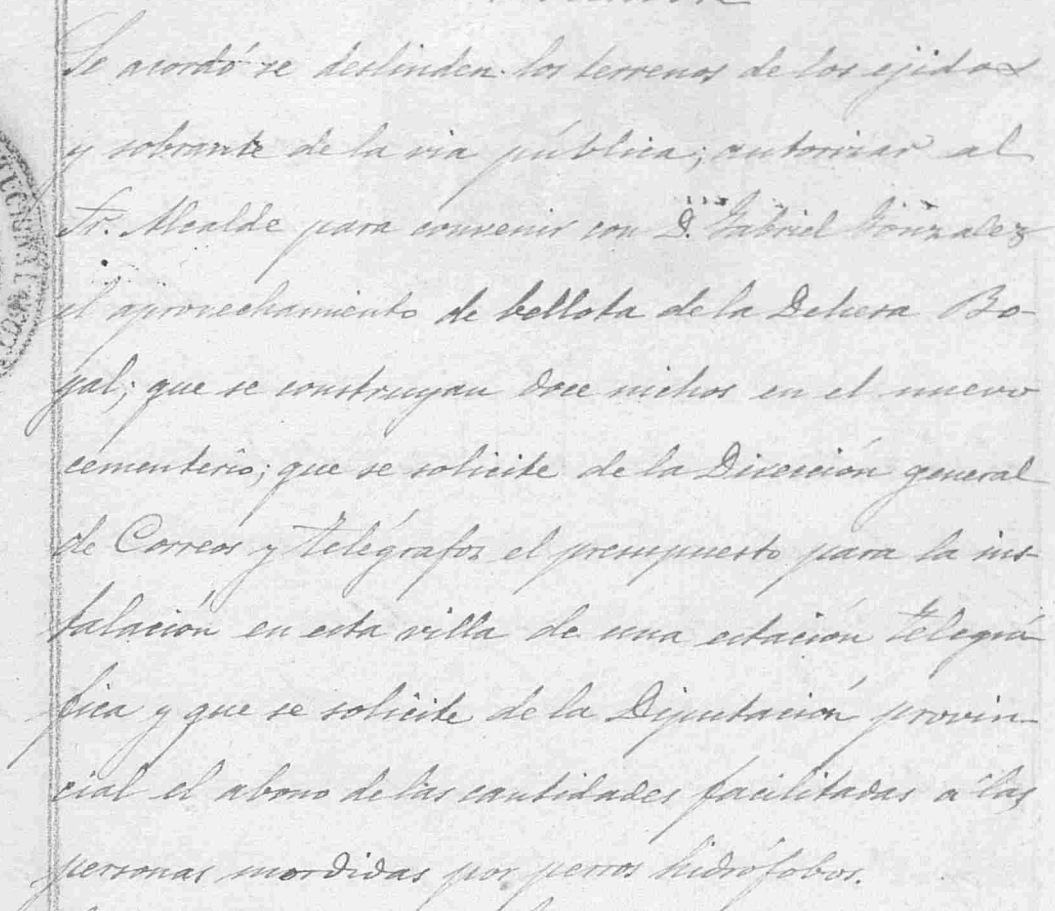 Se acordó se deslinden los terrenos de los ejidos
y sobrante de la via pública; autorizar al
Sr. Alcalde para convenir con D. Gabriel Gonzalez
el aprovechamiento de bellota de la Dehesa Bo-
yal; que se construyan doce nichos en el nuevo
cementerio; que se solicite de la Dirección general
de Correos y Telégrafos el presupuesto para la ins-
talación en esta villa de una estación telegrá
fica y que se solicite de la Diputación provin-
cial el abono de las cantidades facilitadas á las
personas mordidas por perros hidrófobos.